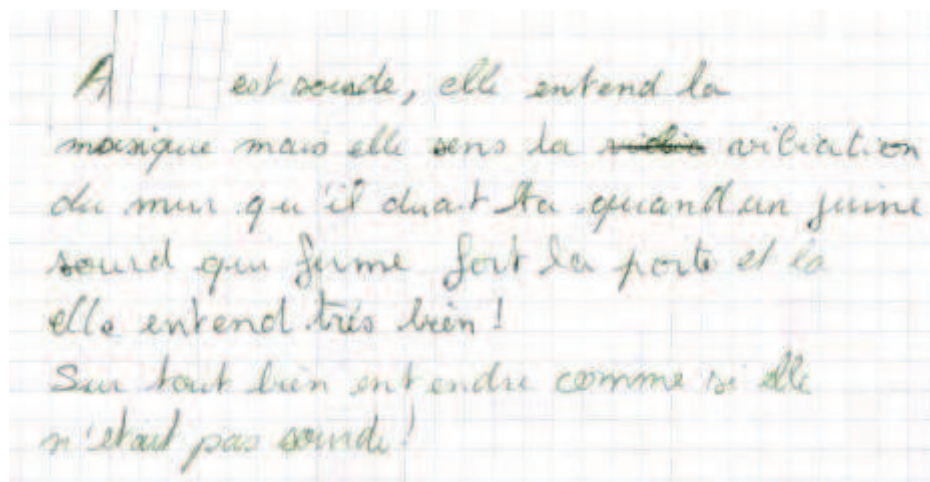 A est sourde, elle entend la
musique mais elle sens la vibration
du mur qu'il duat quand un jeune
sourd qui ferme fort la porte et la
elle entend très bien !
Sur tout bien entendre comme si elle
n'était pas sourde !